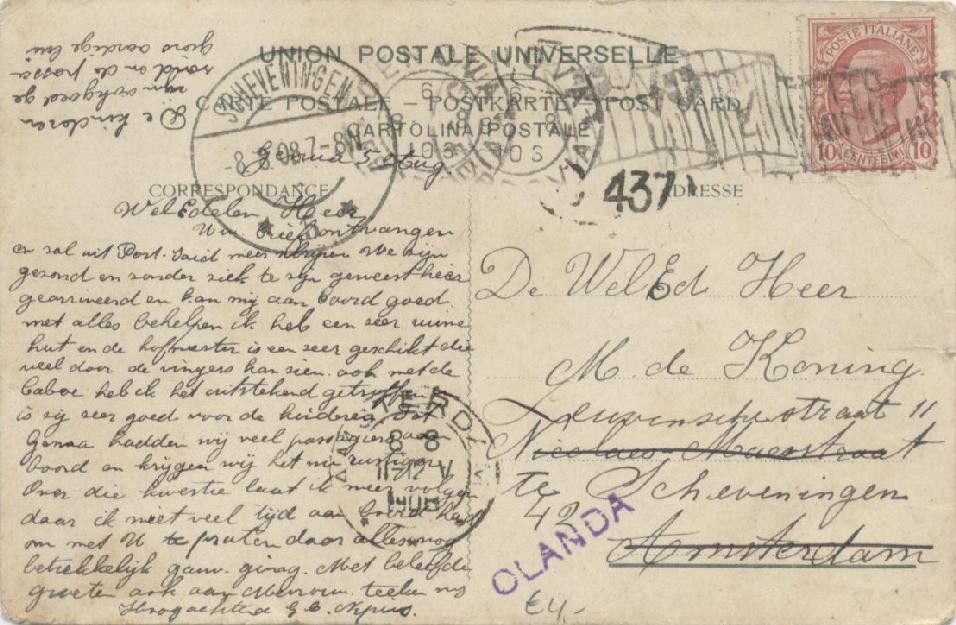 De kinderen
zijn
goed ge
op de passa
giers aardige lui
UNION POSTALE UNIVERSELLE
CARTE POSTALE – POSTKARTE – POST CARD
CARTOLINA POSTALE
CORRESPONDANCE
ADRESSE
POSTE ITALIANE
10 CENTESIMI 10
SCHEVENINGEN
8.8.08.7-8N
GENOVA
437
Genua 5 Aug
WelEdelen Heer
Uw brief ontvangen
en zal uit Port. Said meer schrijven We zijn
gezond en zonder ziek te zijn geweest hier
gearriveerd en kan mij aan boord goed
met alles behelpen ik heb een zeer ruime
hut en de hofmeester is een zeer geschikt die
veel door de vingers kan zien. ook met de
baboe heb ik het uitstekend getroffen
is zij zeer goed voor de kinderen. Tot
Genua hadden wij veel passagiers aan
boord en krijgen wij het nu rustiger
Over die kwestie laat ik meer volgen
daar ik niet veel tijd aan boord had
om met U te praten daar alles nog
betrekkelijk gauw ging. Met beleefde
groeten ook aan Mevrouw. teeken mij
Hoogachtend G. C.
De WelEd Heer
M. de Koning
Leuvenschestraat 11
Nicolaas Maesstraat
te Scheveningen
42
Amsterdam
AMSTERDAM
8 8
11-12 V
OLANDA
€4,-